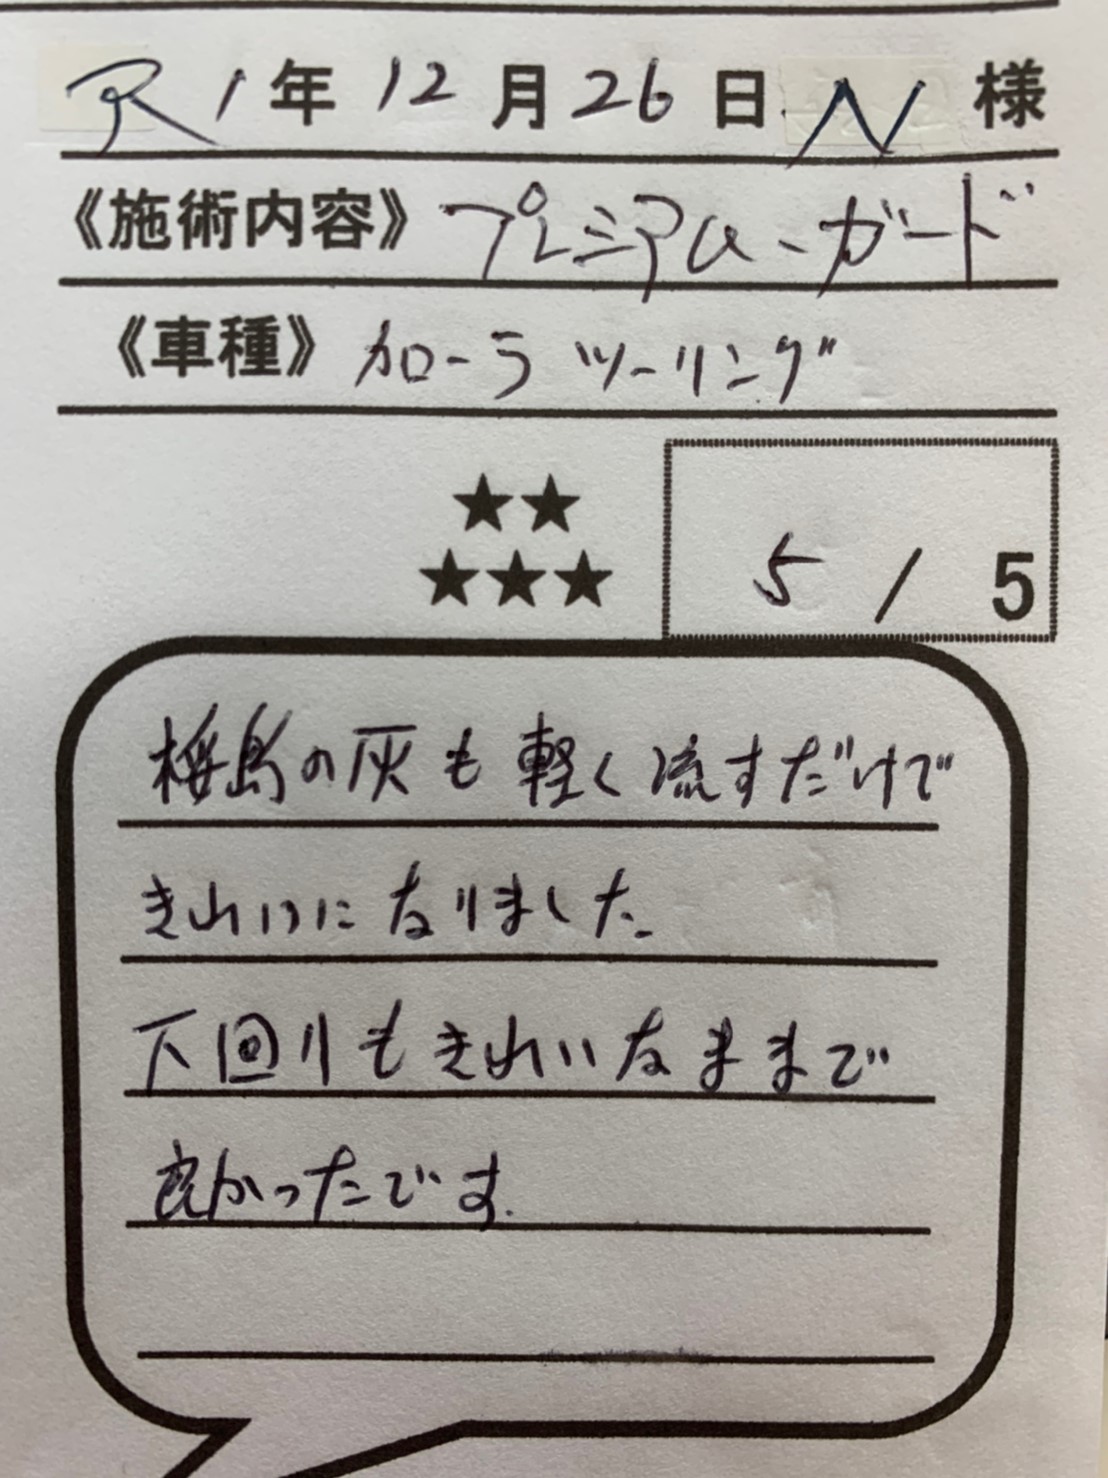 R1年12月26日 N様
《施術内容》プレミアム、ガード
《車種》カローラ ツーリング
★★
★★★
5/5
桜島の灰も軽く流すだけで
きれいになりました
下回りもきれいなままで
良かったです.